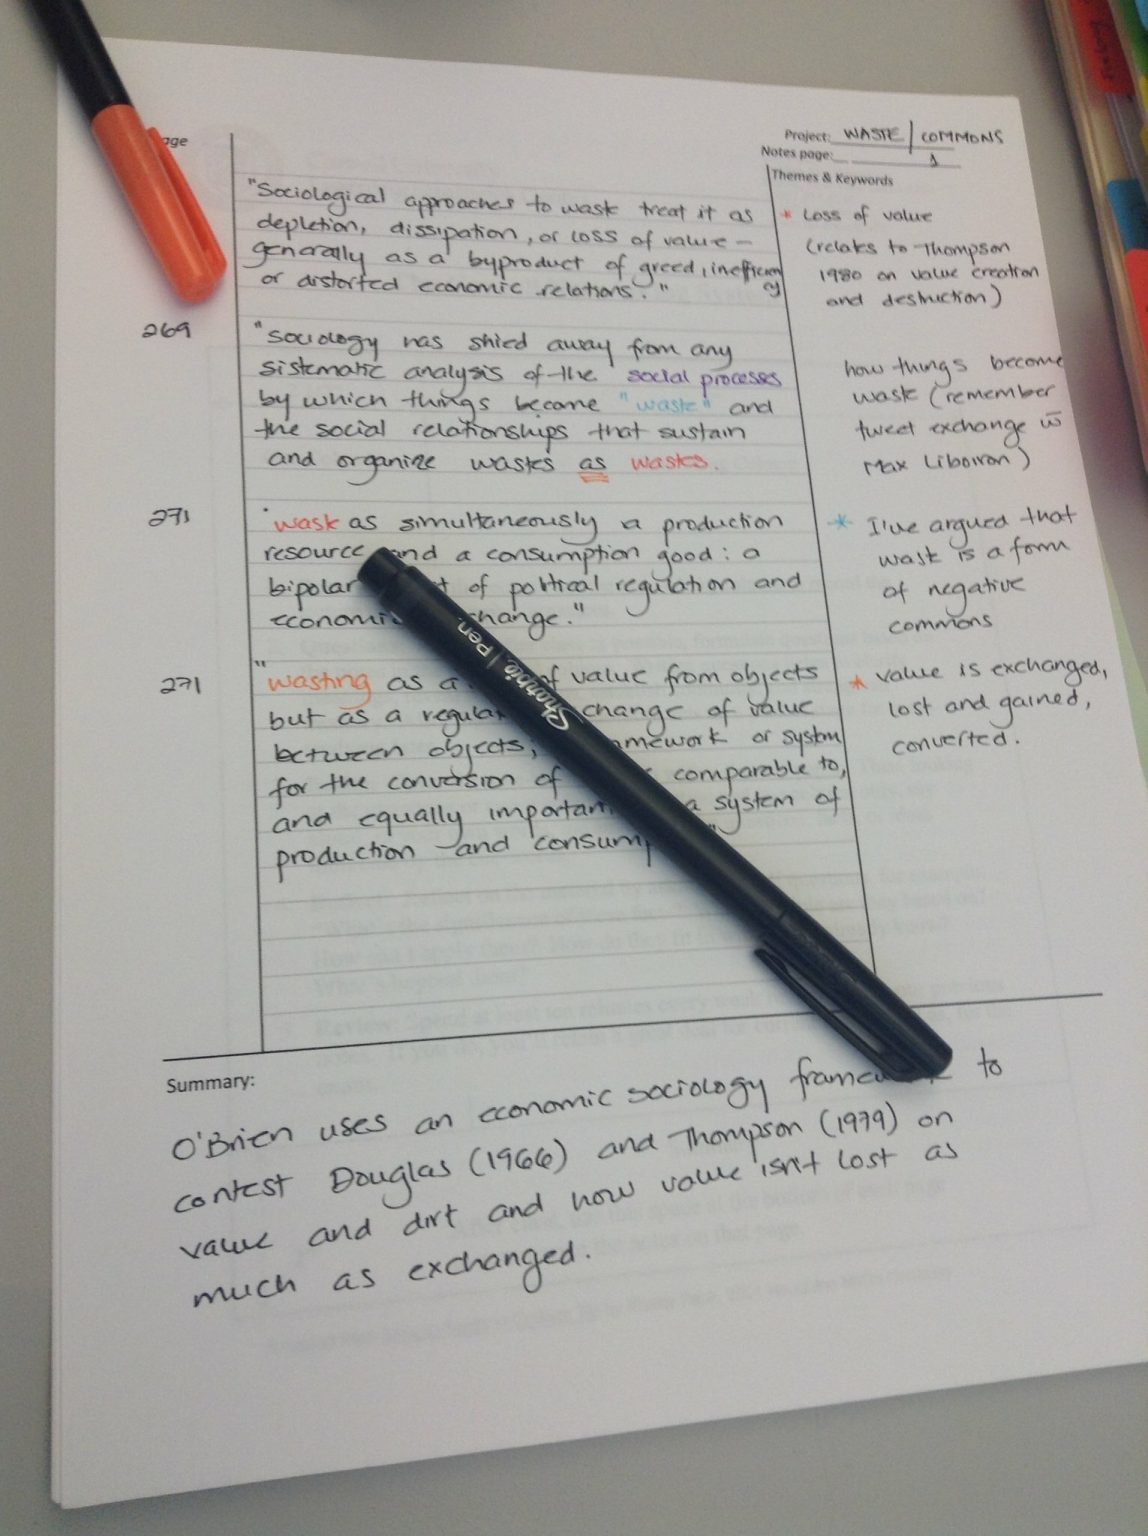 Project: WASTE / COMMONS
Notes page: 1
Themes & Keywords
"Sociological approaches to waste treat it as
depletion, dissipation, or loss of value –
generally as a byproduct of greed, inefficiency
or distorted economic relations."
* Loss of value
(relates to Thompson
1980 on value creation
and destruction)
269
"Sociology has shied away from any
sistematic analysis of the social processes
by which things become "waste" and
the social relationships that sustain
and organize wastes as wastes.
how things become
waste (remember
tweet exchange w̄
Max Liboiron)
271
"waste as simultaneously a production
resource and a consumption good: a
bipolar of political regulation and
economic change."
* I've argued that
waste is a form
of negative
commons
271
"wasting as a of value from objects
but as a regular change of value
between objects, or system
for the conversion of comparable to,
and equally important a system of
production and
* value is exchanged,
lost and gained,
converted.
Sharpie | Pen
Summary:
O'Brien uses an economic sociology framework to
contest Douglas (1966) and Thompson (1979) on
value and dirt and how value isn't lost as
much as exchanged.